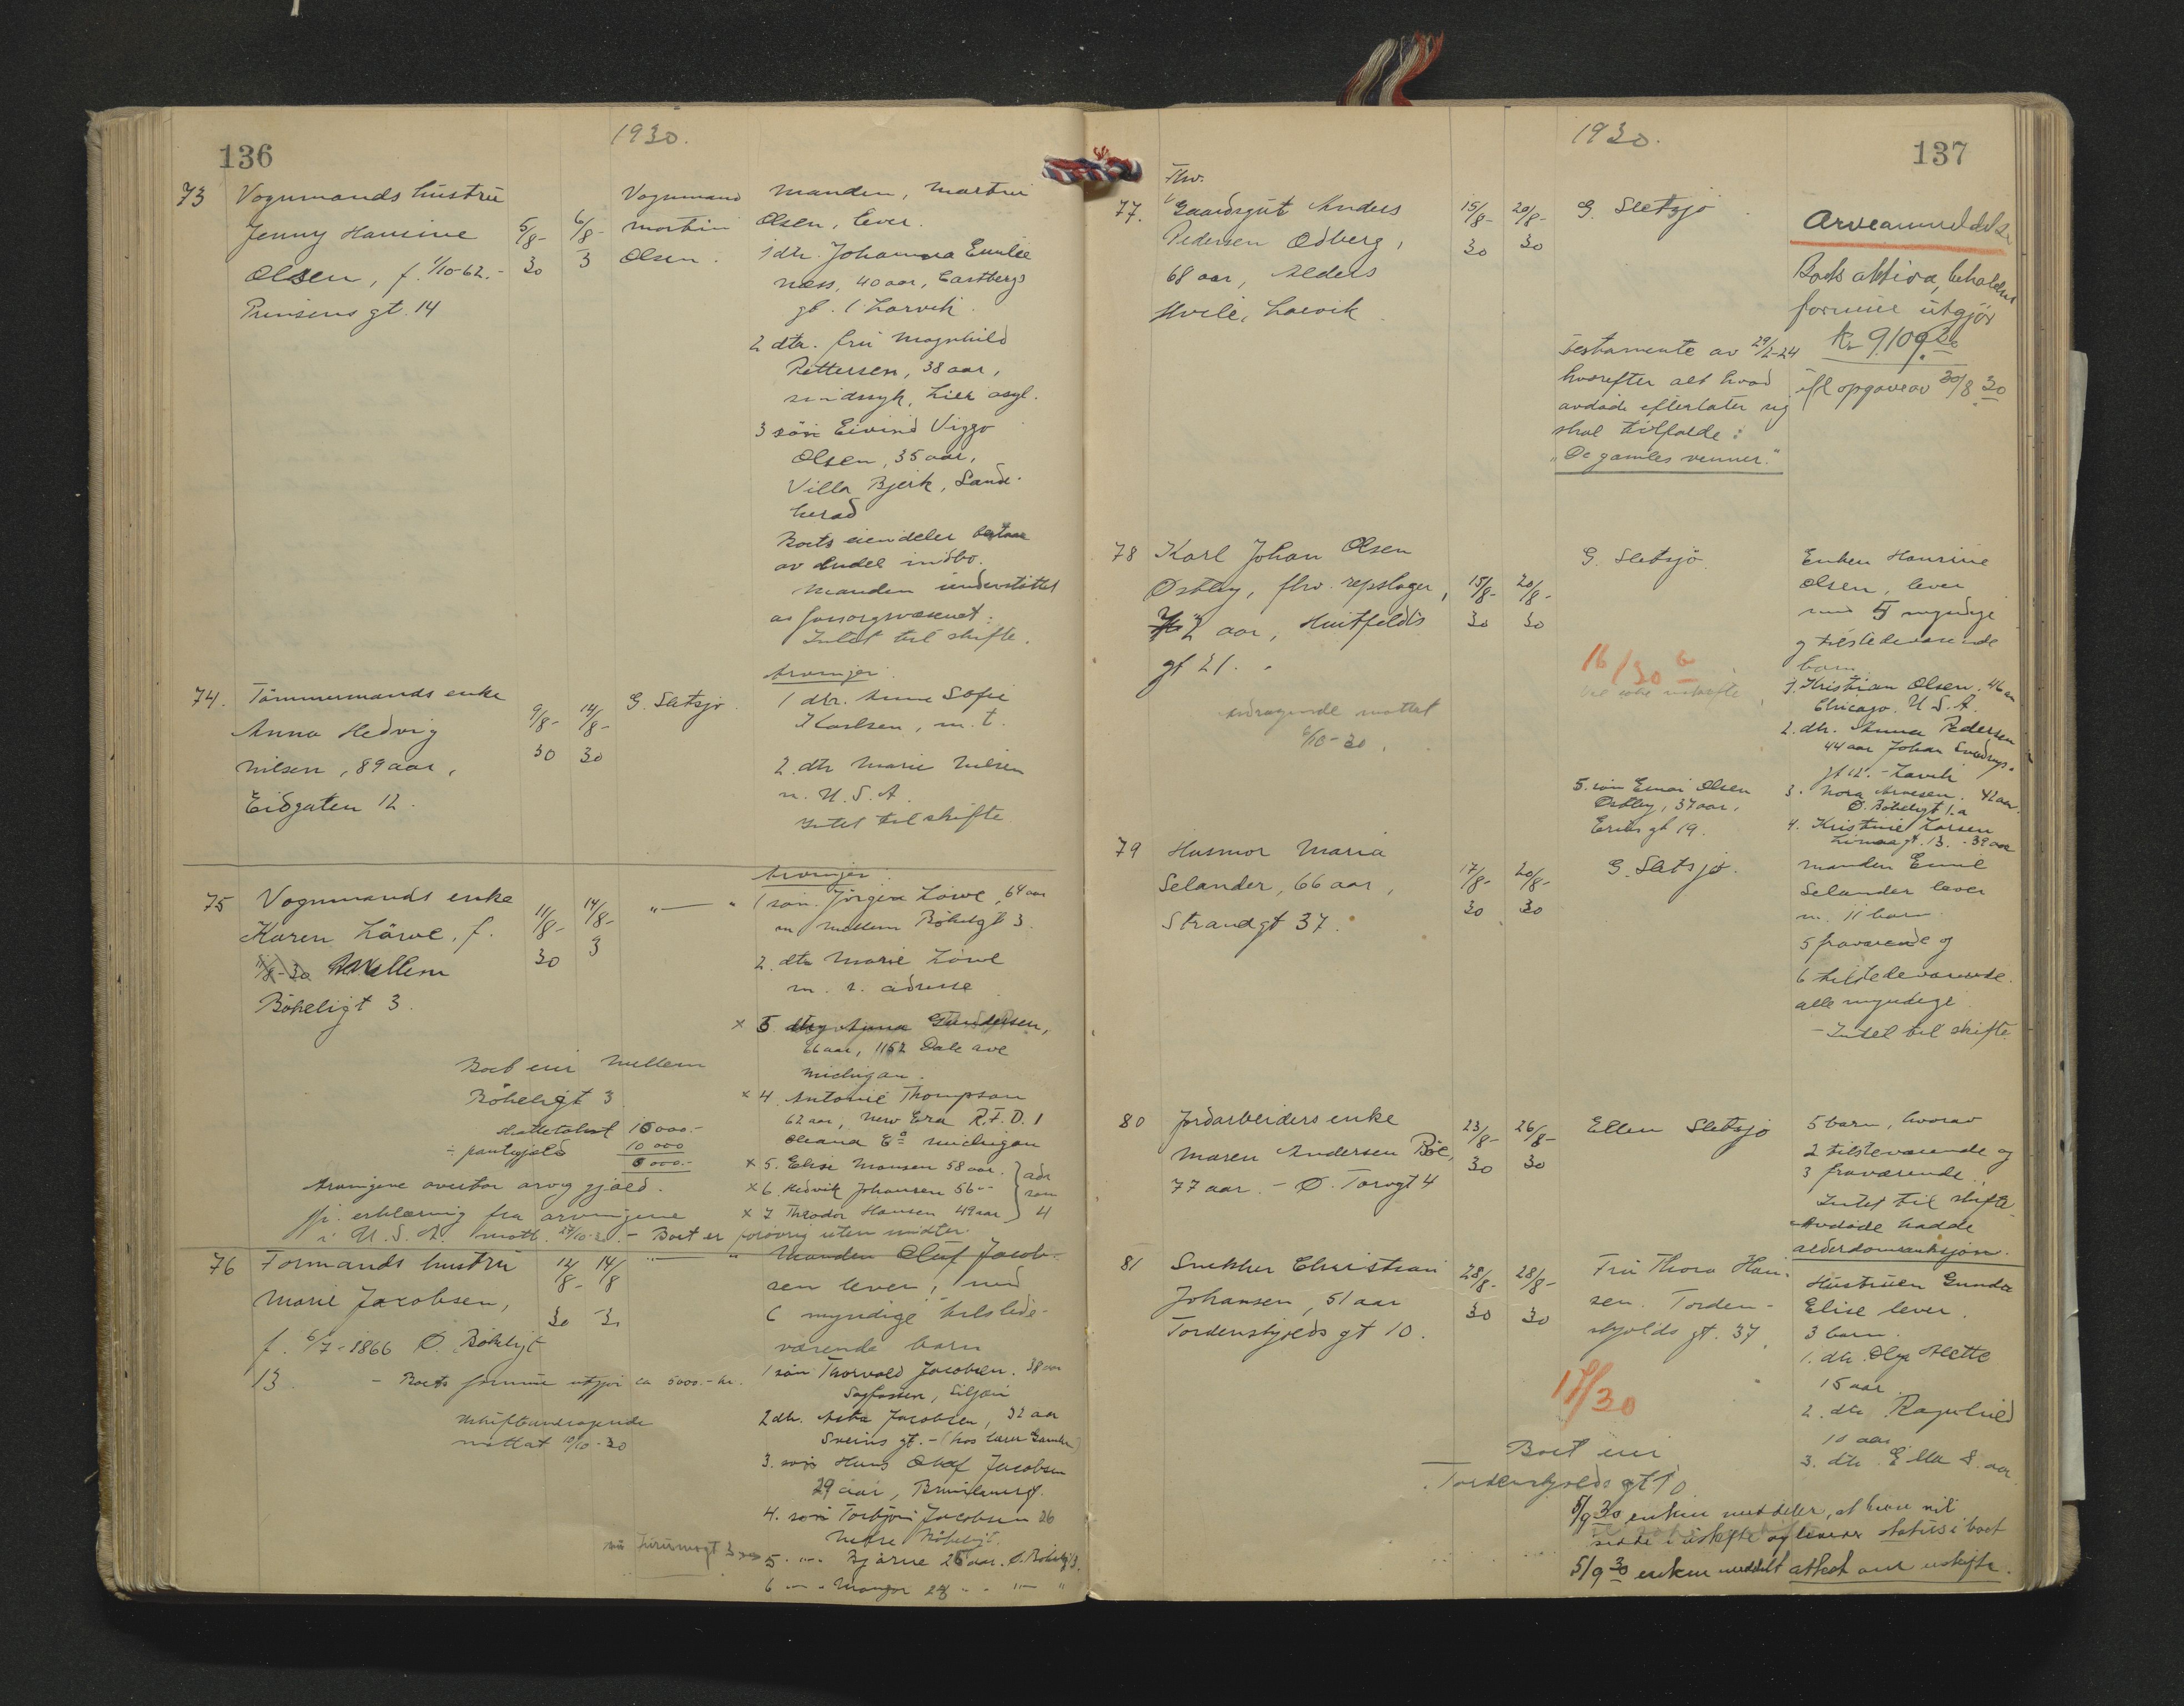 136
1930.
73
Vognmands hustru
Jenny Hansine
Olsen, f. 1/10-62.-
Prinsens gt. 14
5/8-
30
6/8-
3
Vognmand
Martin
Olsen.
Manden, Martin
Olsen, lever.
1 dtr. Johanna Emilie
Næss, 40 aar,
gt. 1 Larvik.
2 dtr. fru Magnhild
Pettersen, 38 aar,
sindssyk, Lier asyl.
3 søn Eivind Viggo
Olsen, 35 aar,
Villa Bjerk, Sande-
herad
Boets eiendeler bestaar
av endel indbo.
Manden understøttet
av forsorgsvæsenet.
Intet til skifte.
74.
Tømmermands enke
Anna Hedvig
Nilsen, 89 aar,
Eidgaten 12.
9/8-
30
14/8-
30
G. Sletsjø.
Arvinger:
1 dtr. Anna Sofie
Karlsen, m. t.
2. dtr Marie Nilsen
n. U.S.A.
Intet til skifte
75
Vognmands enke
Karen Løwe, f.
11/8-30 Mellem
Bøkeligt 3.
11/8-
30
14/8-
3
"—"
Arvinger:
1 søn. Jørgen Løwe, 64 aar
m. Mellem Bøkeligt 3.
2. dtr Marie Løwe
m. s. adresse
x 3 dtr Anna Gundersen,
66 aar, 1152 Dale ave
Michigan.
x 4. Antonie Thompson
62 aar, New Era R.F.D. 1
Oceana Co Michigan
x 5. Elise Monsen 58 aar.
x 6. Hedvik Johansen 56 "
x 7 Theodor Hansen 49 aar
adr
som
4
Boet eier Mellem
Bøkeligt 3
Skattetakst 15000.-
÷ pantegjeld 10 000
5 000.-
Arvingene overtar arv og gjæld.
erklæring fra arvingene
i U.S.A. mott. 27/10-30. - Boet er forøvrig uten midler.
76
Formands hustru
Marie Jacobsen,
f. 6/7-1866 Ø. Bøkeligt
13
12/8-
30
14/8
30
"—"
Manden Oluf Jacob-
sen lever, med
6 myndige tilstede-
værende barn
1 søn Thorvald Jacobsen. 38 aar
Sagfossen, Siljan
2 dtr. Asta Jacobsen, 32 aar
Sveins gt. - (hos lærer
3. søn Hans Olaf Jacobsen
29 aar,
4. søn Torbjørn Jacobsen 26
Nedre Bøkeligt.
5. "-" Bjarne 25 aar. Ø. Bøkeligt 13.
6 "-" 23 " "-" "
- Boets formue utgjør ca 5000.- kr.
Uskifteandragende
mottat 10/10-30
137
1930.
77.
Fhv.
Gaardsgut Anders
Pedersen Odberg,
68 aar, Alders
Hvile, Larvik
15/8-
30
20/8-
30
G. Sletsjø
Testamente av 29/2-24
hvorefter alt hvad
avdøde efterlater sig
skal tilfalde:
"De gamles venner."
Arveanmeldelse
Boets aktiva, beholdne
formue utgjør
Kr 9109.
ifl opgave av 30/8 30
78
Karl Johan Olsen
Østby, fhv. repslager,
72 aar, Huitfeldts
gt 21.
15/8-
30
20/8-
30
G. Sletsjø
16/30 b
andragende mottat
6/10-30.
Enken Hansine
Olsen, lever
med 5 myndige
og tilstedeværende
barn
1. Kristian Olsen. 46 aar
Chicago. U.S.A.
2. dtr. Anna Pedersen
44 aar Johan Sverdrups-
gt 12. - Larvik
3. Nora Arnesen. 42 aar.
Ø. Bøkeligt 1.a
4. Kristine Larsen
gt. 13. - 39 aar
5. søn Einar Olsen
Østby, 37 aar,
Eriks gt 19.
79
Husmor Maria
Selander, 66 aar,
Strandgt 37.
17/8-
30
20/8-
30
G. Sletsjø.
Manden Emil
Selander lever
m. 11 barn
5 fraværende og
6 tilstedeværende.
alle myndige.
- Intet til skifte
80
Jordarbeiders enke
Maren Andersen Bøe,
77 aar. - Ø. Torvgt 4
23/8-
30
26/8-
30
Ellen Sletsjø
5 barn, hvorav
2 tilsteværende og
3 fraværende.
Intet til skifte
Avdøde hadde
alderdomspensjon.
81
Snekker Christian
Johansen, 51 aar
Tordenskjolds gt 10.
28/8-
30
28/8-
30
Fru Thora Han-
sen. Torden-
skjolds gt. 37
17/30
Hustruen Gunda
Elise lever.
3 barn.
1. dtr. Olga Mette
15 aar.
2. dtr Ragnhild
10 aar
3. dtr. Ella 8. aar
Boet eier
Tordenskjolds gt 10
5/9 30 enken meddeler, at hun vil
sidde i uskifte og leverer status i boet
5/9 30 enken meddelt attest om uskifte.